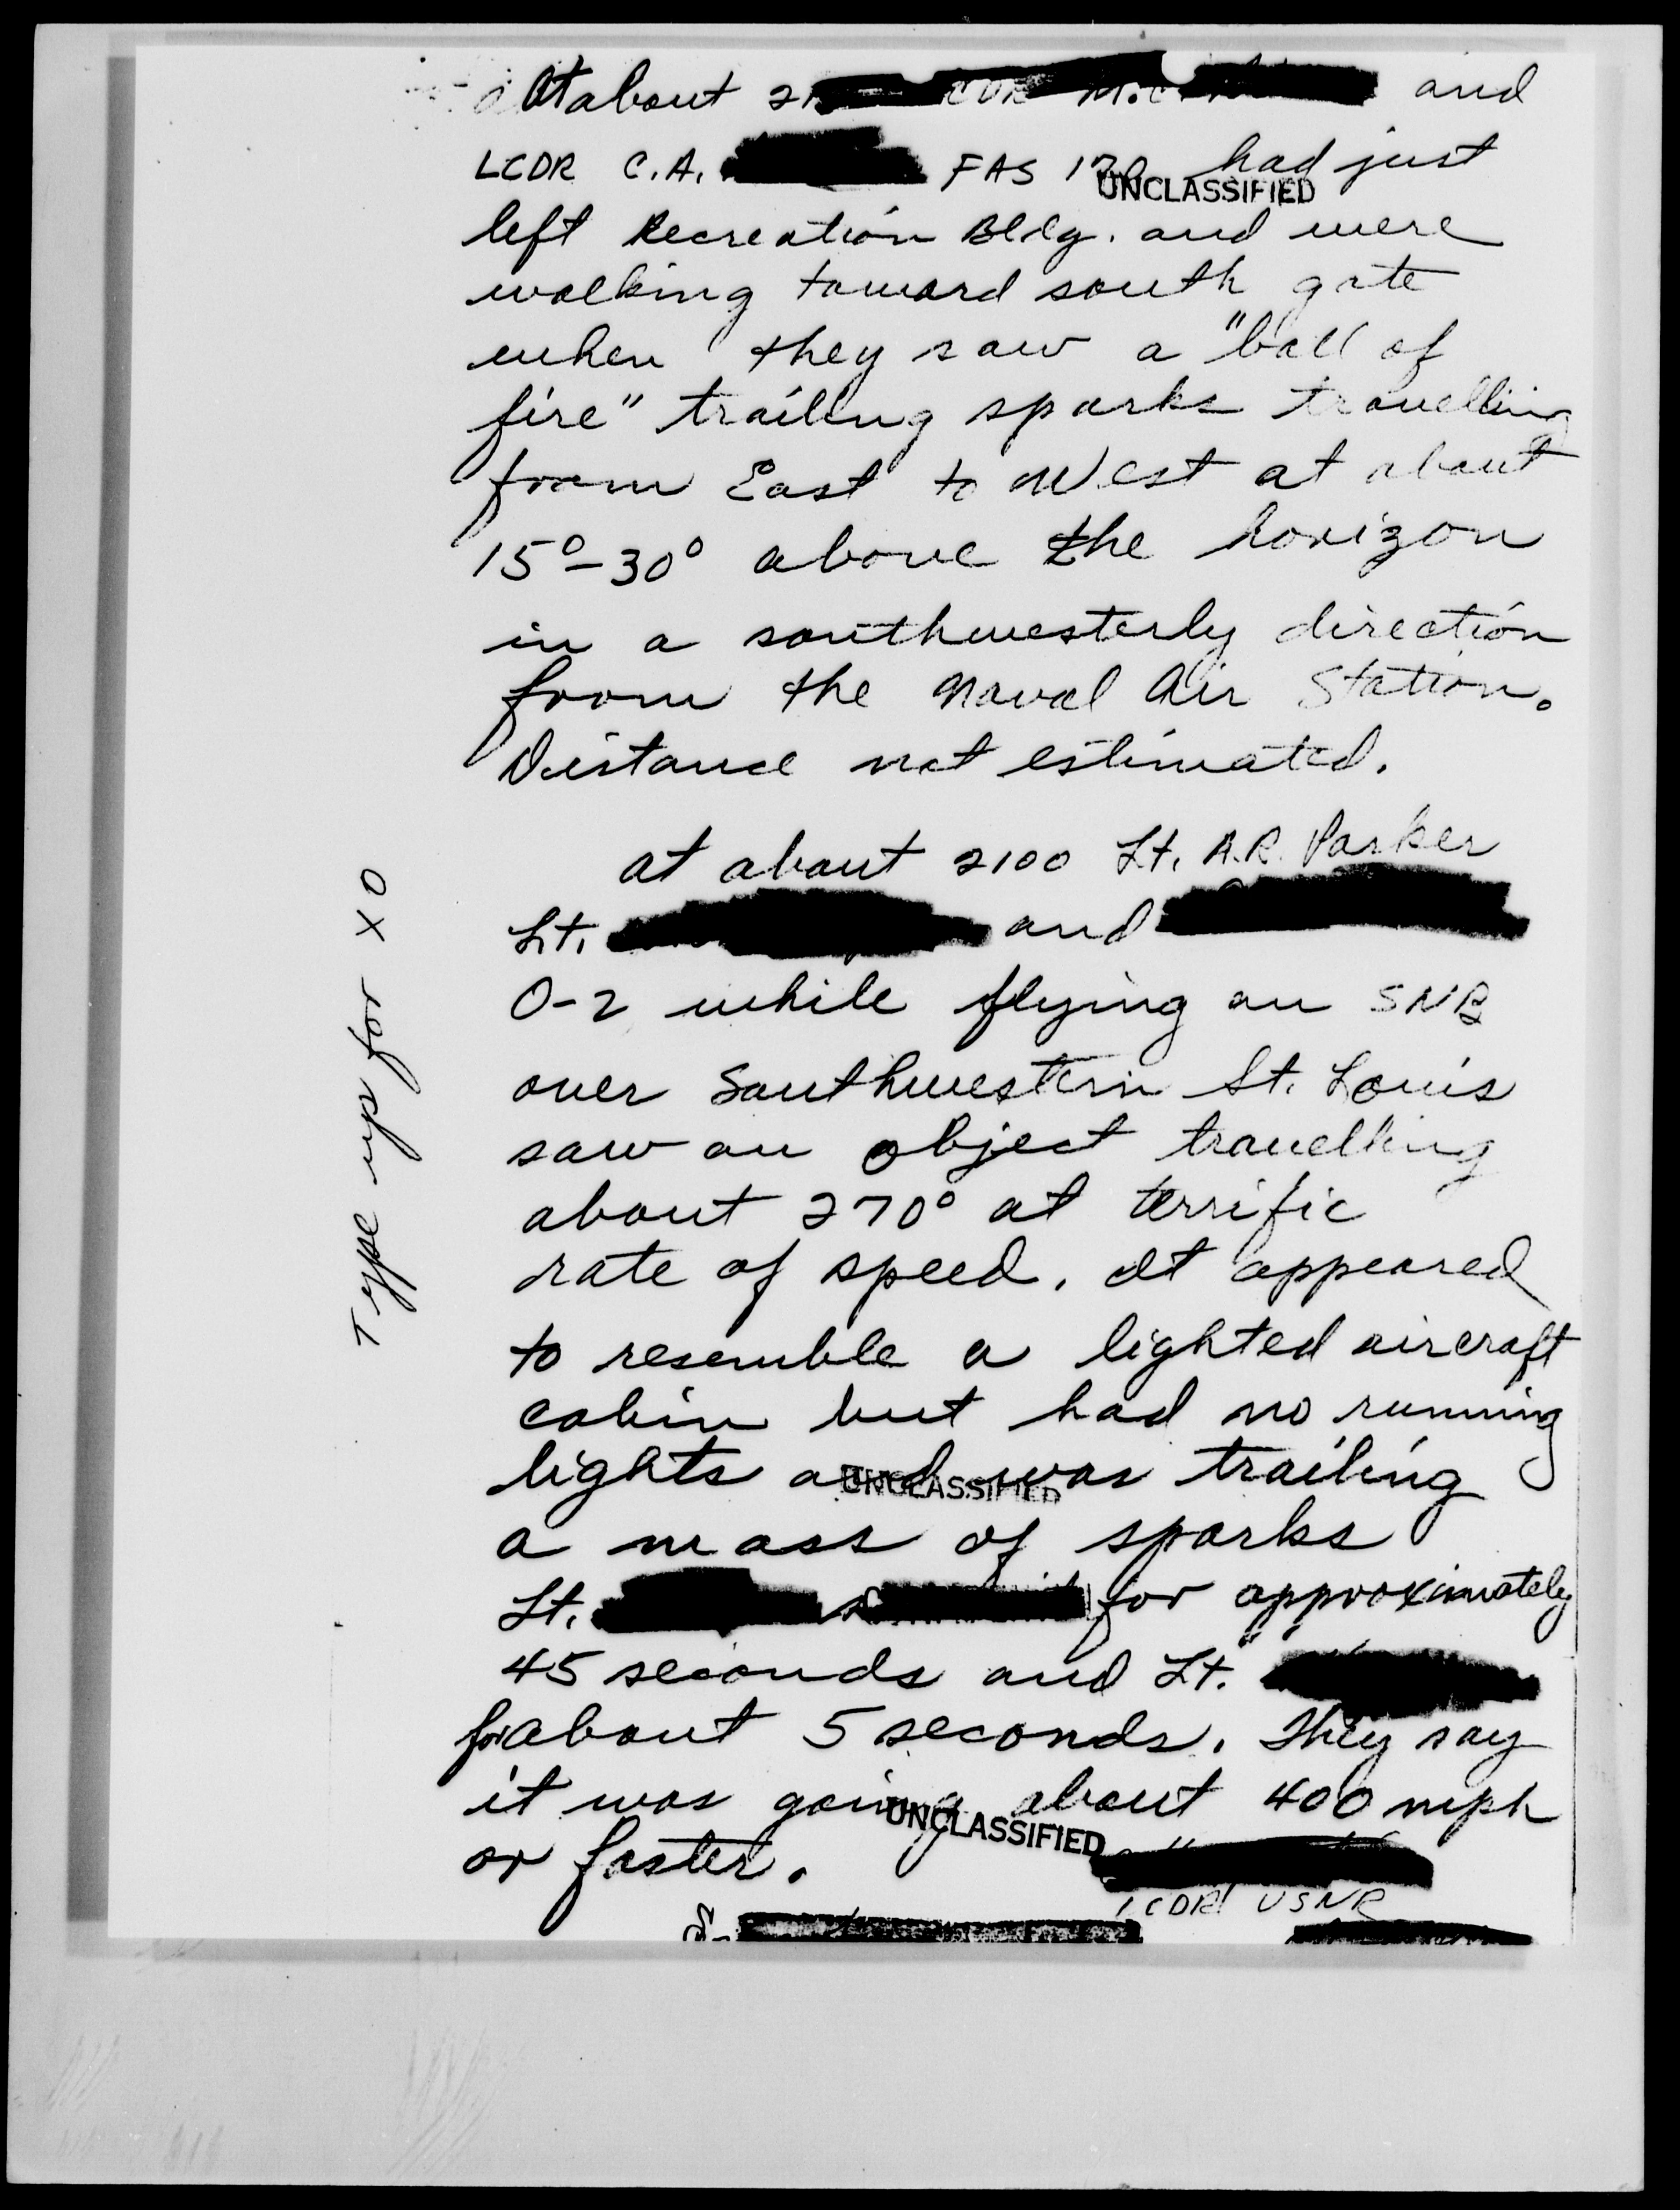 At about and
LCDR C.A. FAS had just
UNCLASSIFIED
left Recreation Bldg. and were
walking toward south gate
when they saw a "ball of
fire" trailing sparks travelling
from East to West at about
15°-30° above the horizon
in a southwesterly direction
from the Naval Air Station.
Distance not estimated.
at about 2100 Lt. A.R. Parker
Lt. and
O-2 while flying an SNB
over Southwestern St. Louis
saw an object travelling
about 270° at terrific
rate of speed. It appeared
to resemble a lighted aircraft
cabin but had no running
lights and was trailing
UNCLASSIFIED
a mass of sparks
Lt. for approximately
45 seconds and Lt.
for about 5 seconds. They say
it was going about 400 mph
UNCLASSIFIED
or faster.
LCDR USNR
Type up for XO